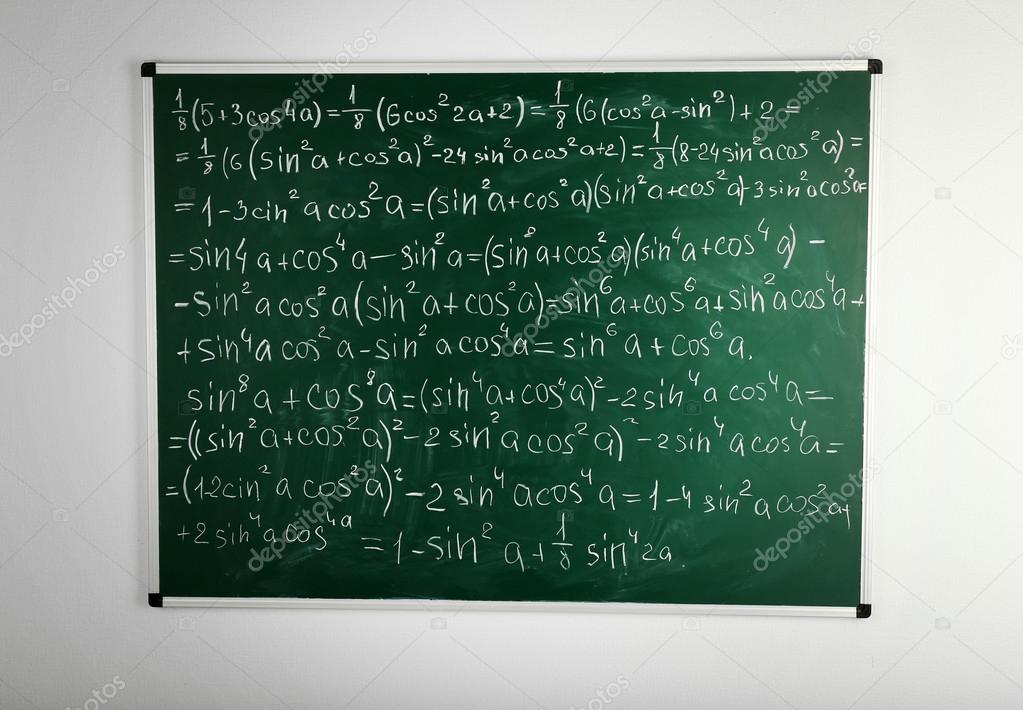 1/8(5+3cos4a)=1/8(6cos²2a+2)=1/8(6(cos²a-sin²)+2=
=1/8(6(sin²a+cos²a)²-24sin²acos²a+2)=1/8(8-24sin²acos²a)=
=1-3cin²acos²a=(sin²a+cos²a)(sin²a+cos²a)-3sin²acos²a=
=sin4a+cos⁴a-sin²a=(sin²a+cos²a)(sin⁴a+cos⁴a)-
-sin²acos²a(sin²a+cos²a)=sin⁶a+cos⁶a+sin²acos⁴a+
+sin⁴acos²a-sin²acos⁴a=sin⁶a+cos⁶a.
sin⁸a+cos⁸a=(sin⁴a+cos⁴a)²-2sin⁴acos⁴a=
=((sin²a+cos²a)²-2sin²acos²a)²-2sin⁴acos⁴a=
=(12cin²acos²a)²-2sin⁴acos⁴a=1-4sin²acos²a+
+2sin⁴acos⁴a=1-sin²a+1/8sin⁴2a
depositphotos